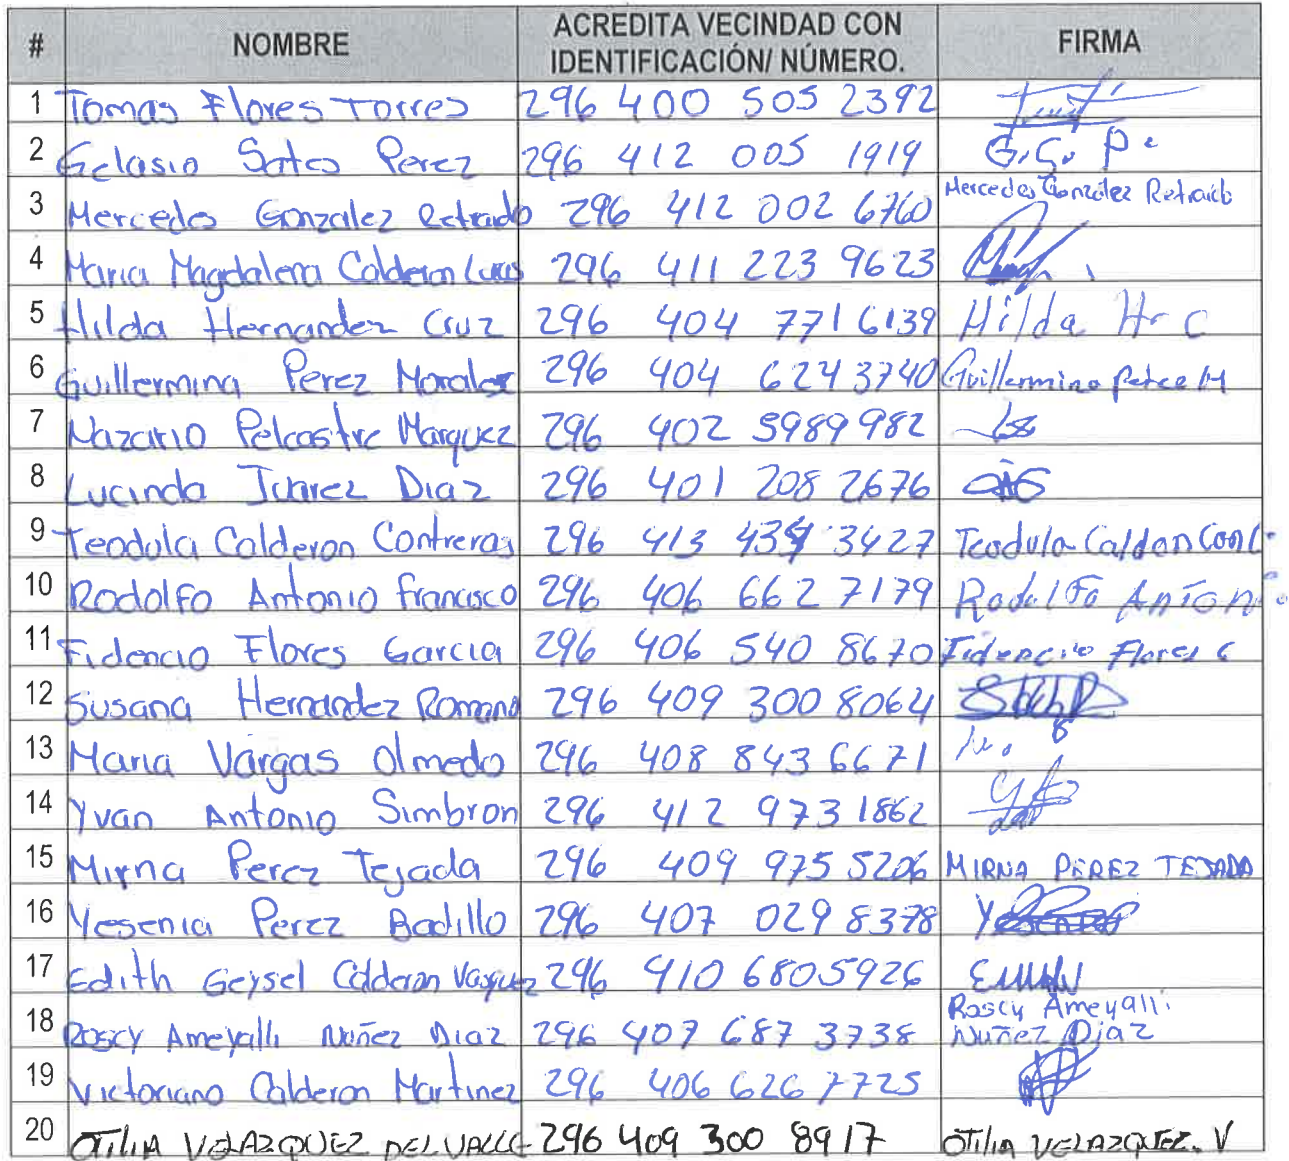 # NOMBRE ACREDITA VECINDAD CON IDENTIFICACIÓN/ NÚMERO. FIRMA
1 Tomas Flores Torres 296 400 505 2392
2 Gelasio Sotes Perez 296 412 005 1919 G.S. P.
3 Mercedes Gonzalez Retraido 296 412 002 6760 Mercedes González Retraido
4 Maria Magdalena Calderon Lucas 296 411 223 9623
5 Hilda Hernandez Cruz 296 404 771 6139 Hilda Hr C
6 Guillermina Perez Morales 296 404 624 3740 Guillermina Perez M
7 Nazario Pelcastre Marquez 296 402 5989982
8 Lucinda Juarez Diaz 296 401 208 2676
9 Teodula Calderon Contreras 296 413 434 3427 Teodula Caldon Cont
10 Rodolfo Antonio Francisco 296 406 662 7179 Rodolfo Antonio
11 Fidencio Flores Garcia 296 406 540 8670 Fidencio Flores G
12 Susana Hernandez Romano 296 409 300 8064
13 Maria Vargas Olmedo 296 408 843 6671
14 Yvan Antonio Simbron 296 412 973 1862
15 Mirna Perez Tejada 296 409 975 5206 MIRNA PEREZ TEJADA
16 Yesenia Perez Badillo 296 407 029 8378
17 Edith Geysel Calderon Vasquez 296 410 6805926
18 Roscy Ameyalli Nuñez Diaz 296 407 687 3738 Roscy Ameyalli
Nuñez Diaz
19 Victoriano Calderon Martinez 296 406 626 7725
20 OTILIA VELAZQUEZ DEL VALLE 296 409 300 8917 OTILIA VELAZQUEZ. V